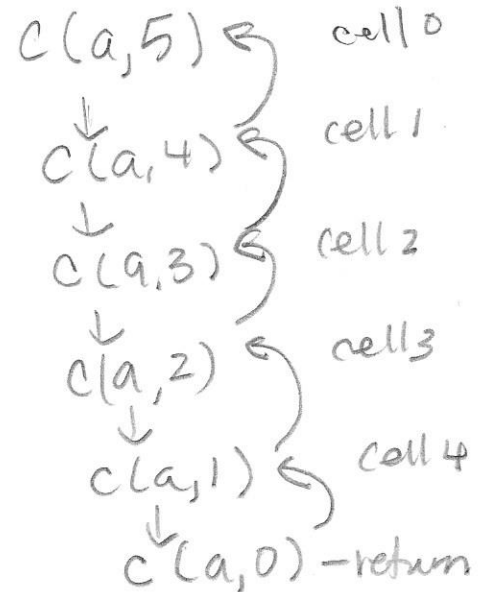 c(a,5) cell 0
c(a,4) cell 1
c(a,3) cell 2
c(a,2) cell 3
c(a,1) cell 4
c(a,0) - return